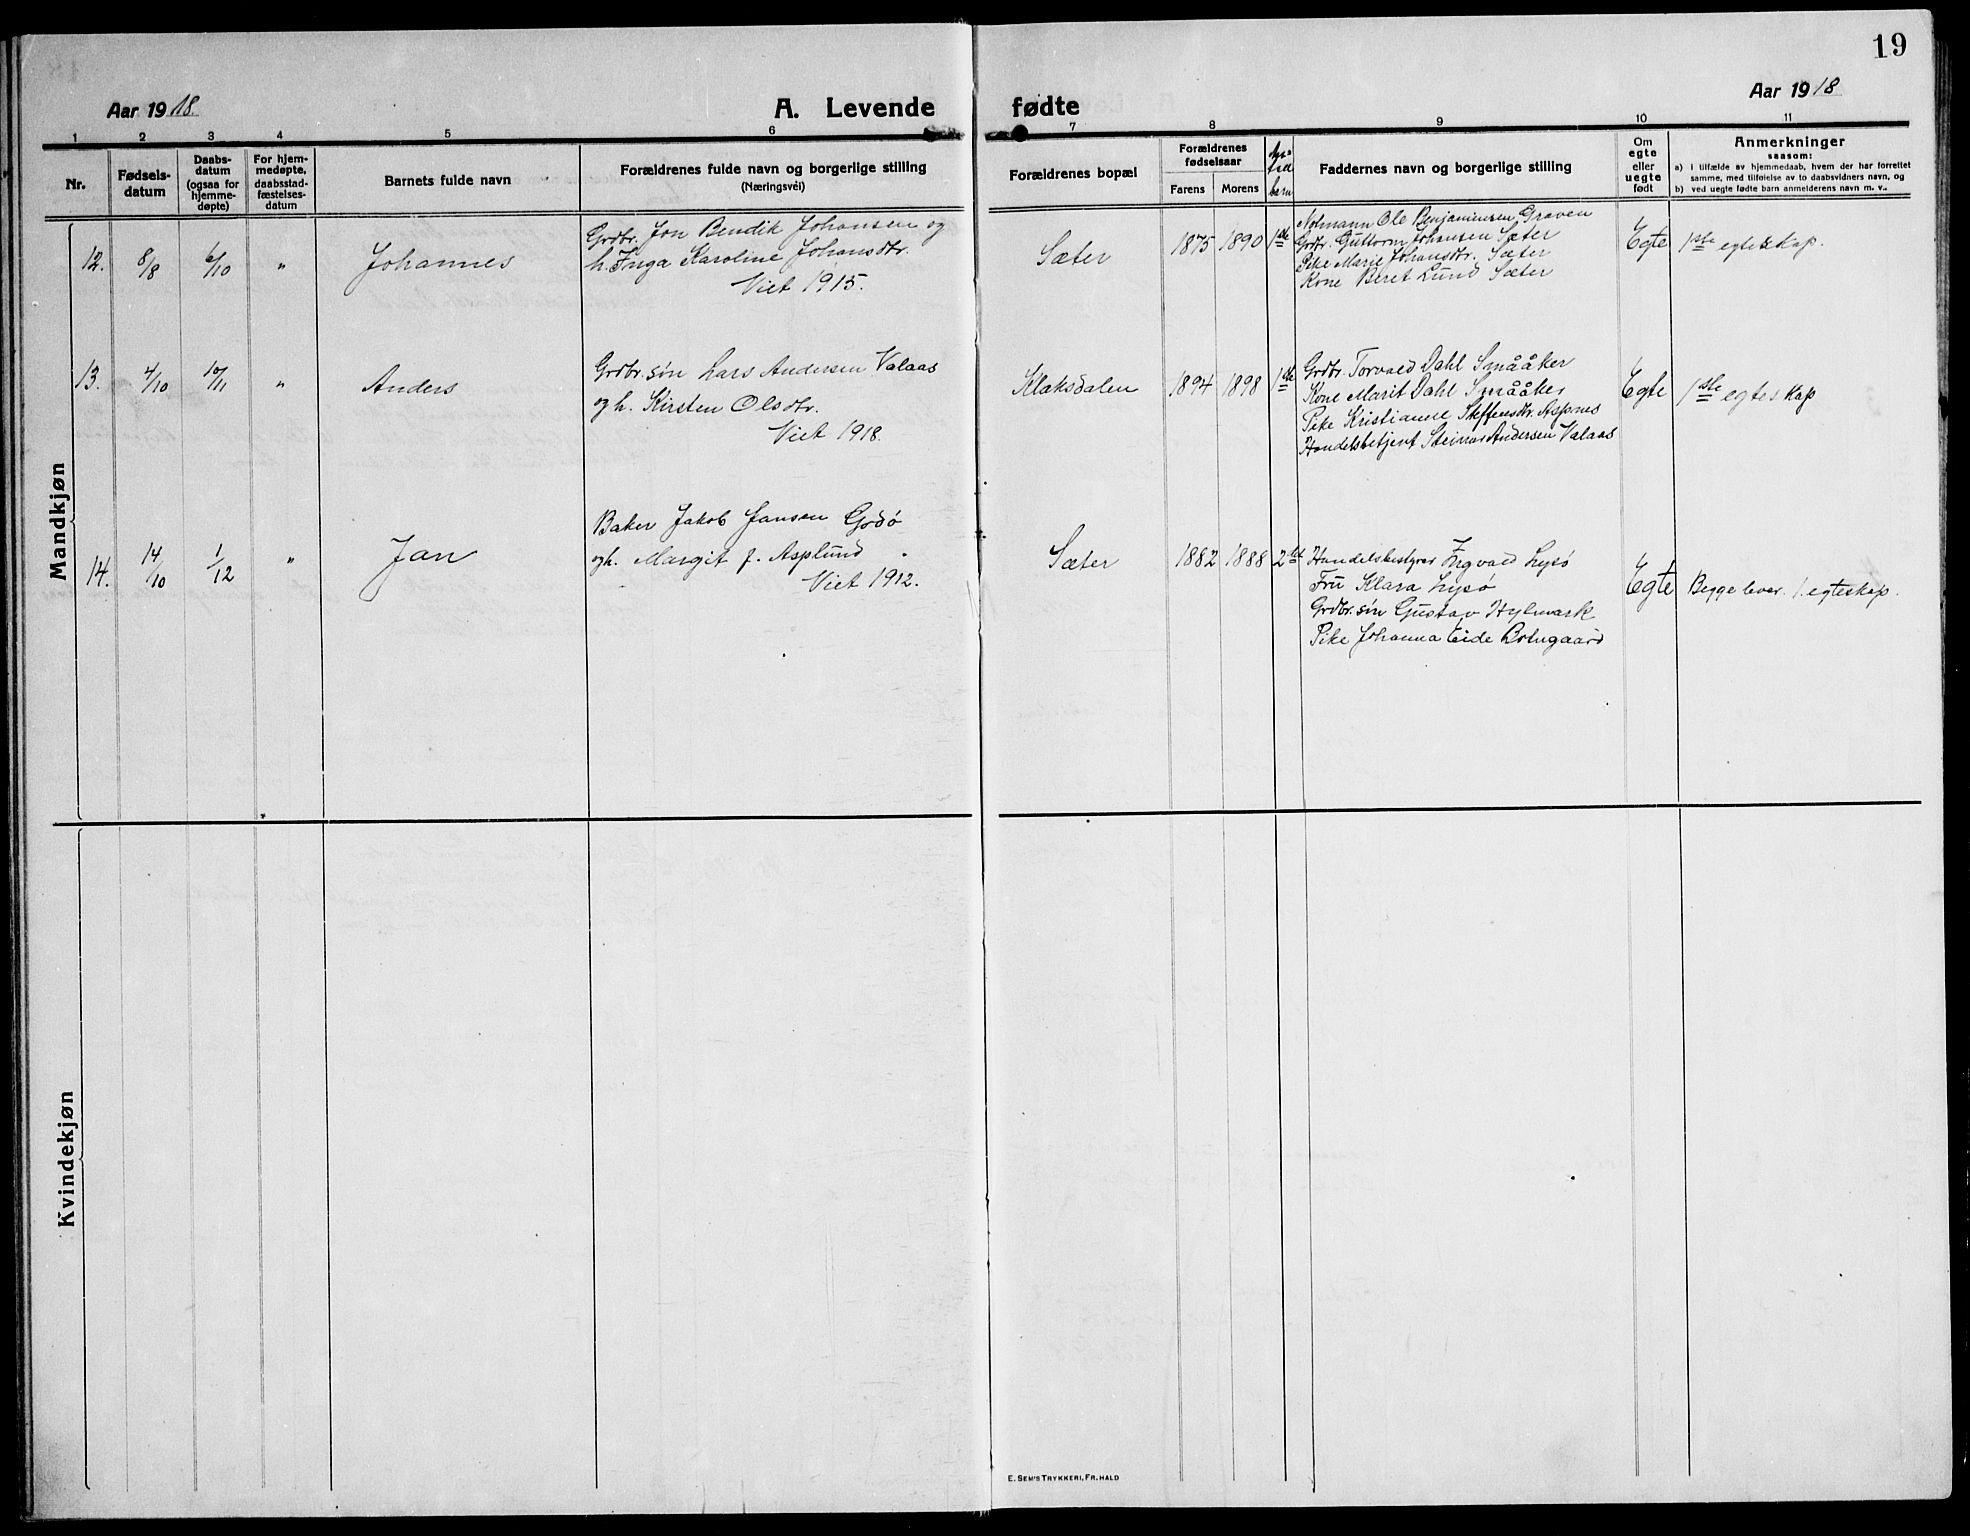 19
Aar 1918.
A. Levende
fødte
Aar 1918
1 2 3 4 5 6 7 8 9 10 11
Nr.
Fødsels-
datum
Daabs-
datum
(ogsaa for
hjemme-
døpte)
For hjem-
medøpte,
daabsstad-
fæstelses-
datum
Barnets fulde navn
Forældrenes fulde navn og borgerlige stilling
(Næringsvei)
Forældrenes bopæl
Forældrenes
fødselsaar
Farens Morens
barn
Faddernes navn og borgerlige stilling
Om
egte
eller
uegte
født
Anmerkninger
saasom:
a) i tilfælde av hjemmedaab, hvem der har forrettet
samme, med tilføielse av to daabsvidners navn, og
b) ved uegte fødte barn anmelderens navn m. v..
Mandkjøn
12. 8/8 6/10 " Johannes
Grdbr. Jon Bendik Johansen og
h. Inga Karoline Johansdtr.
Viet 1915.
Sæter 1875 1890 1ste
Notmann Ole Benjaminsen Graven
Grdbr. Guttorm Johansen Sæter
Pike Marie Johansdtr. Sæter
Kone Beret Lund Sæter
Egte 1ste egteskap.
13. 4/10 10/11 " Anders
Grdbr. søn Lars Andersen Valaas
og h. Kirsten Olsdtr.
Viet 1918.
Klaksdalen 1894 1898 1ste
Grdbr. Torvald Dahl Småaker
Kone Marit Dahl Småaker
Pike Kristianne Steffensdtr. Aspnes
Handelsbetjent Steinar Andersen Valaas
Egte 1ste egteskap
14. 14/10 1/12 " Jan
Baker Jakob Jansen Godø
og h. Margit f. Asplund
Viet 1912.
Sæter 1882 1888 2det
Handelsbestyrer Ingvald Lysø
Fru Klara Lysø
Grdbr. søn Gustav Hylmark
Pike Johanna Eide Botngaard
Egte Begge lever 1. egteskap.
Kvindekjøn
E. SEM'S TRYKKERI, FR.HALD